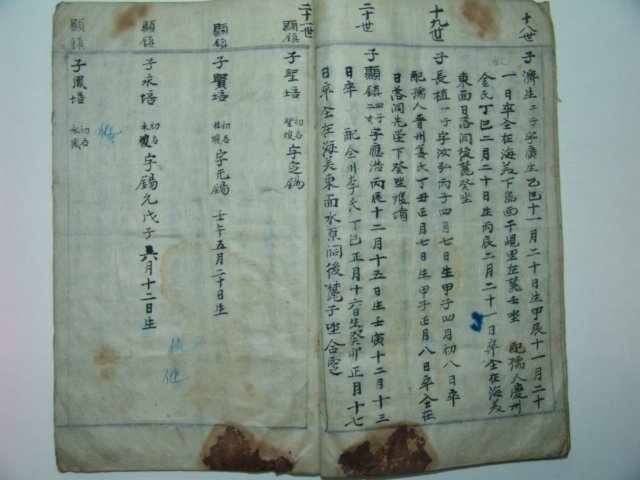 十八世 子 濟生 二子字廣生乙巳十一月二十日生甲辰十一月二十
一日卒仝在海美下島面干峴里左麓壬坐 配孺人慶州
金氏丁巳二月二十日生丙辰二月二十一日卒仝在海美
東面日落洞後麓癸坐
十九世 子 長植 一子字汝弘丙子四月七日生甲子四月初八日卒
配孺人晋州姜氏丁丑正月七日生甲子正月八日卒仝在
日落洞先塋下癸坐雙墳
二十世 子 顯鎮 四子二女 字應浩丙辰十二月十五日生壬寅十二月十三
日卒 配全州李氏丁巳正月十六日生癸卯正月十七
日卒仝在海美東面水泉洞後麓子坐合窆
二十一世
顯鎮 子 聖培 初名聖煥 字定錫
顯鎮 子 賢培 初名 字元錫 壬午五月二十日生
顯鎮 子 永培 初名永煥 字錫九戊子六月十二日生
顯鎮 子 鳳培 初名永鳳